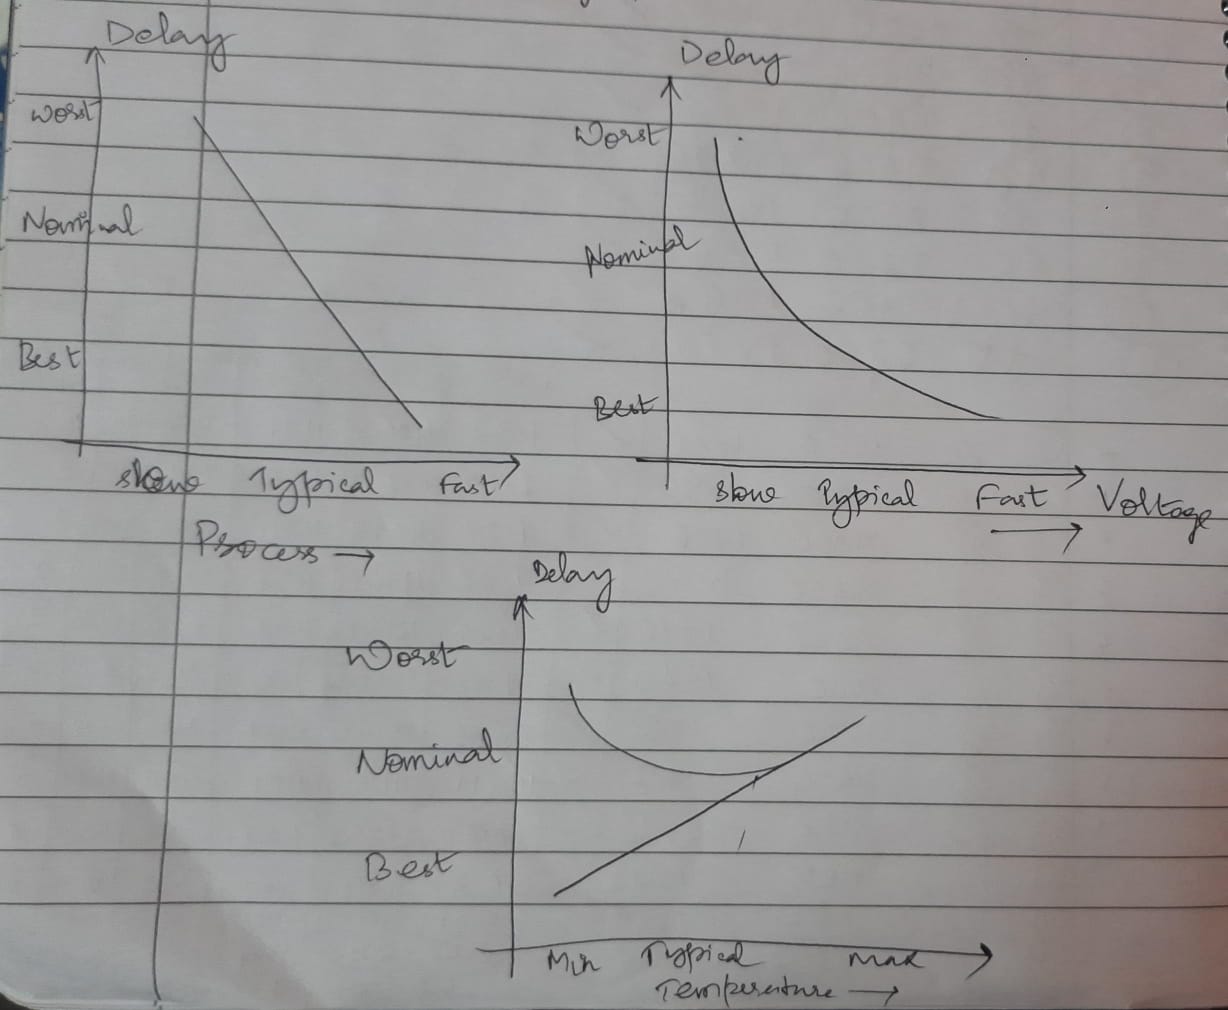 Delay
Worst
Nominal
Best
Slow Typical Fast
Process →
Delay
Worst
Nominal
Best
Slow Typical Fast Voltage
→
Delay
Worst
Nominal
Best
Min Typical Max
Temperature →